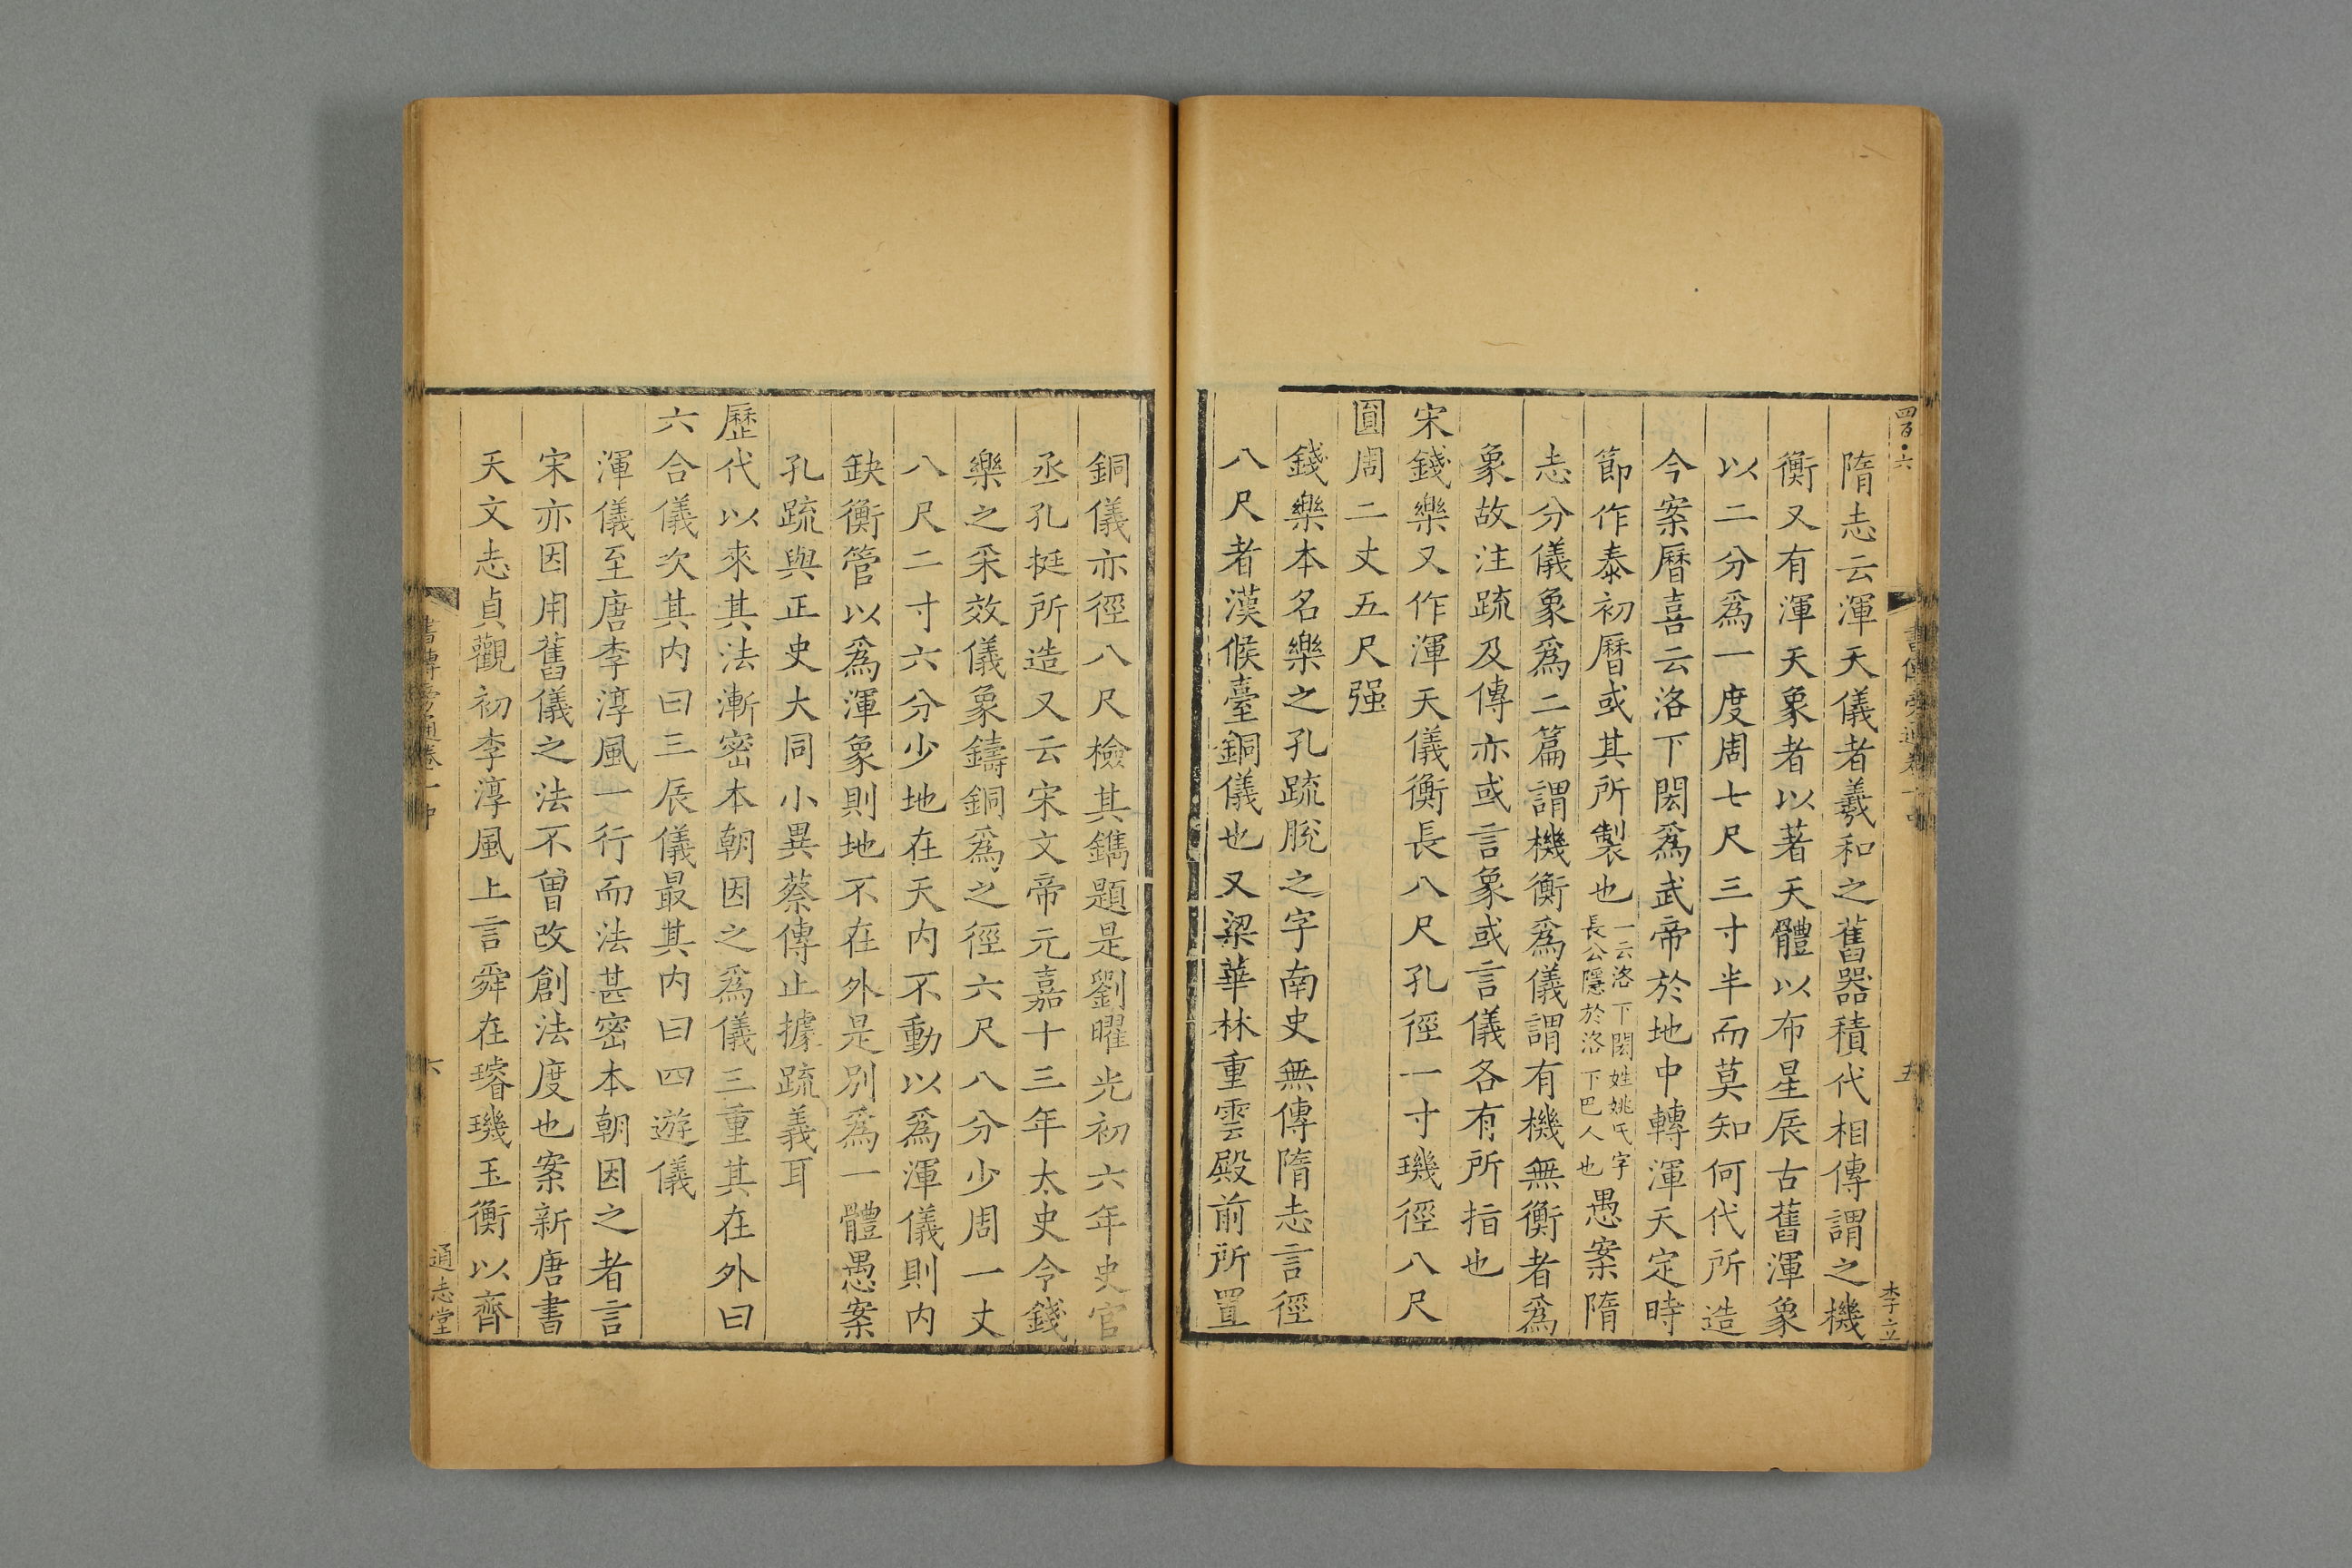 四百·六
書傳旁通卷一中
五
李立
隋志云渾天儀者羲和之舊器積代相傳謂之機
衡又有渾天象者以著天體以布星辰古舊渾象
以二分爲一度周七尺三寸半而莫知何代所造
今案曆喜云洛下閎爲武帝於地中轉渾天定時
節作泰初曆或其所製也一云洛下閎姓姚氏字長公隱於洛下巴人也愚案隋
志分儀象爲二篇謂機衡爲儀謂有機無衡者爲
象故注疏及傳亦或言象或言儀各有所指也
宋錢樂又作渾天儀衡長八尺孔徑一寸璣徑八尺
圓周二丈五尺强
錢樂本名樂之孔疏脫之字南史無傳隋志言徑
八尺者漢候臺銅儀也又梁華林重雲殿前所置
銅儀亦徑八尺檢其鐫題是劉曜光初六年史官
丞孔挺所造又云宋文帝元嘉十三年太史令錢
樂之采效儀象鑄銅爲之徑六尺八分少周一丈
八尺二寸六分少地在天内不動以爲渾儀則内
缺衡管以爲渾象則地不在外是別爲一體愚案
孔疏與正史大同小異蔡傳止據疏義耳
歷代以來其法漸密本朝因之爲儀三重其在外曰
六合儀次其内曰三辰儀最其内曰四遊儀
渾儀至唐李淳風一行而法甚密本朝因之者言
宋亦因用舊儀之法不曾改創法度也案新唐書
天文志貞觀初李淳風上言舜在璿璣玉衡以齊
書傳旁通卷一中
六
通志堂